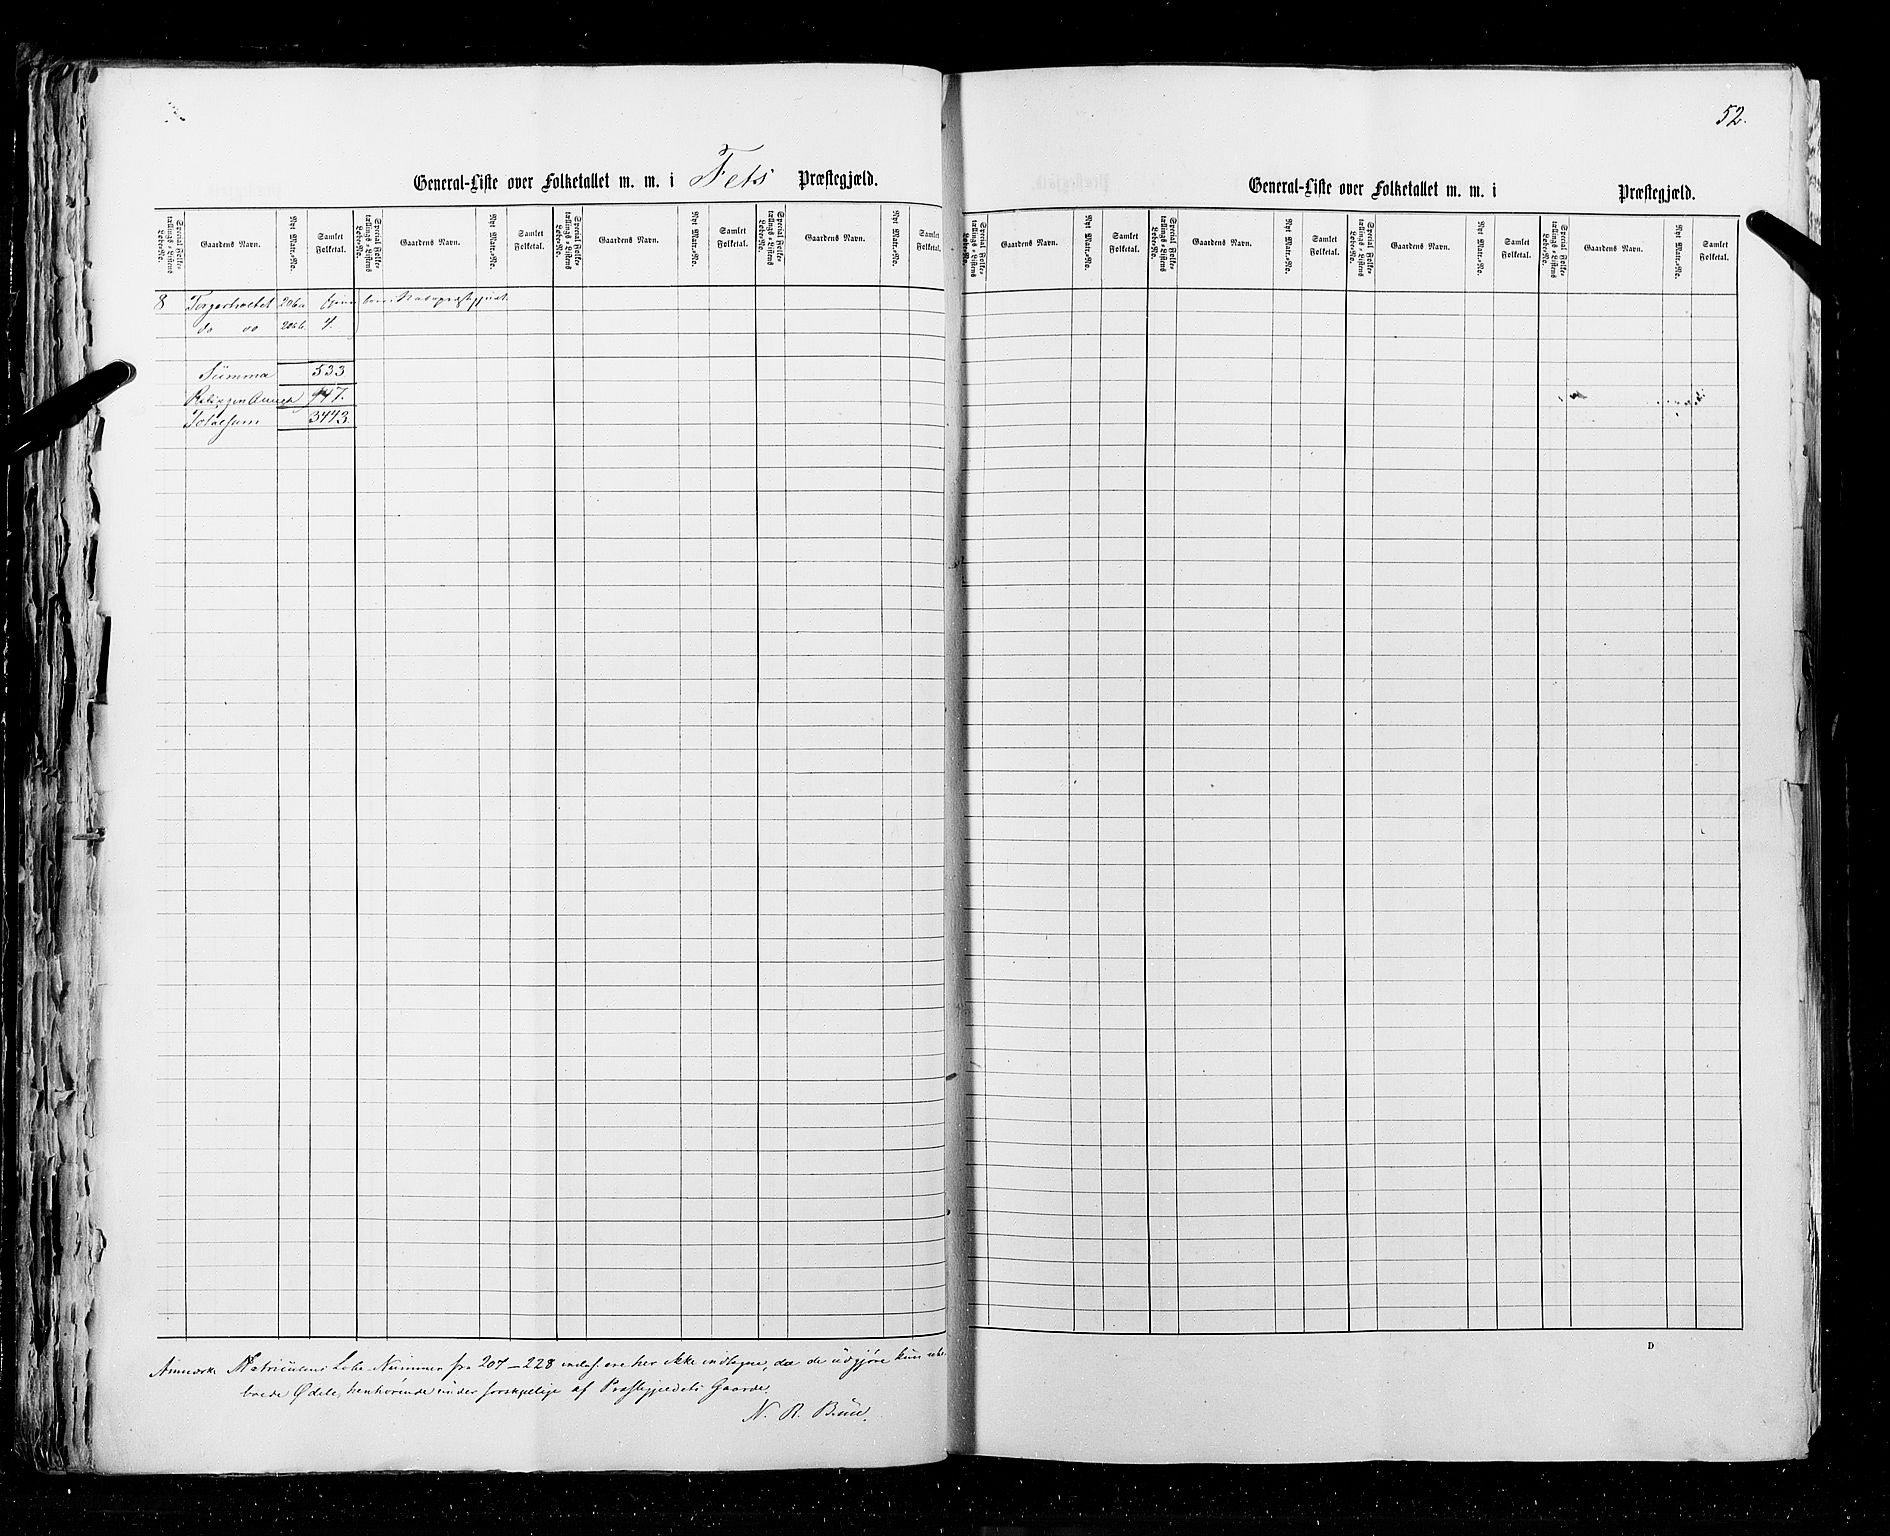 General-Liste over Folketallet m. m. i Fets Præstegjæld.
Special Folketællings-Listens Løbe-No. Gaardens Navn. Nyt Matr.-No. Samlet Folketal. Special Folketællings-Listens Løbe-No. Gaardens Navn. Nyt Matr.-No. Samlet Folketal. Special Folketællings-Listens Løbe-No. Gaardens Navn. Nyt Matr.-No. Samlet Folketal. Special Folketællings-Listens Løbe-No. Gaardens Navn. Nyt Matr.-No. Samlet Folketal.
8 206a
do do 206b. 4.
Summa 533
947.
Totalsum 3443.
Anmærk. Matriculens Løbe-Nummer fra 207-228 incl. ere her ikke indtagne, da de udgjøre kun ube-
boede Ødele, henhørende under forskjellige af Præstegjeldets Gaarde.
N. R. Bull.
52.
General-Liste over Folketallet m. m. i Præstegjæld.
Special Folketællings-Listens Løbe-No. Gaardens Navn. Nyt Matr.-No. Samlet Folketal. Special Folketællings-Listens Løbe-No. Gaardens Navn. Nyt Matr.-No. Samlet Folketal. Special Folketællings-Listens Løbe-No. Gaardens Navn. Nyt Matr.-No. Samlet Folketal. Special Folketællings-Listens Løbe-No. Gaardens Navn. Nyt Matr.-No. Samlet Folketal.
D